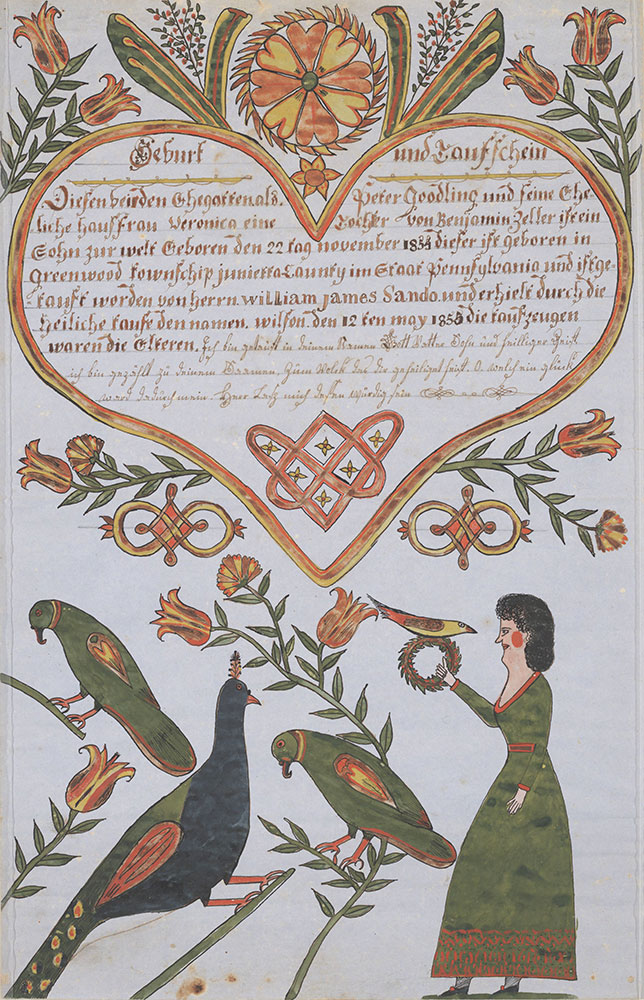 Geburt und Taufschein
Diesen beiden Ehegatten als Peter Goodling und seine Ehe-
liche hausfrau Veronica eine Tochter von Benjamin Zeller ist ein
Sohn zur welt Geboren den 22 tag november 1854 dieser ist geboren in
Greenwood townschip junietta Caunty im Staat Pennsylvania und ist ge-
tauft worden von herrn william james Sando. und erhielt durch die
heiliche taufe den namen. wilson. den 12 ten may 1855 die taufzeugen
waren die Elteren. Ich bin getauft in deinem Namen Gott Vatter Sohn und heilliger Geist
ich bin gezählt zu deinem Saamen. Zum Volck das dir geheiliget heist. O welch ein glück
ward dadurch mein. Herr Lass mich dessen würdig sein